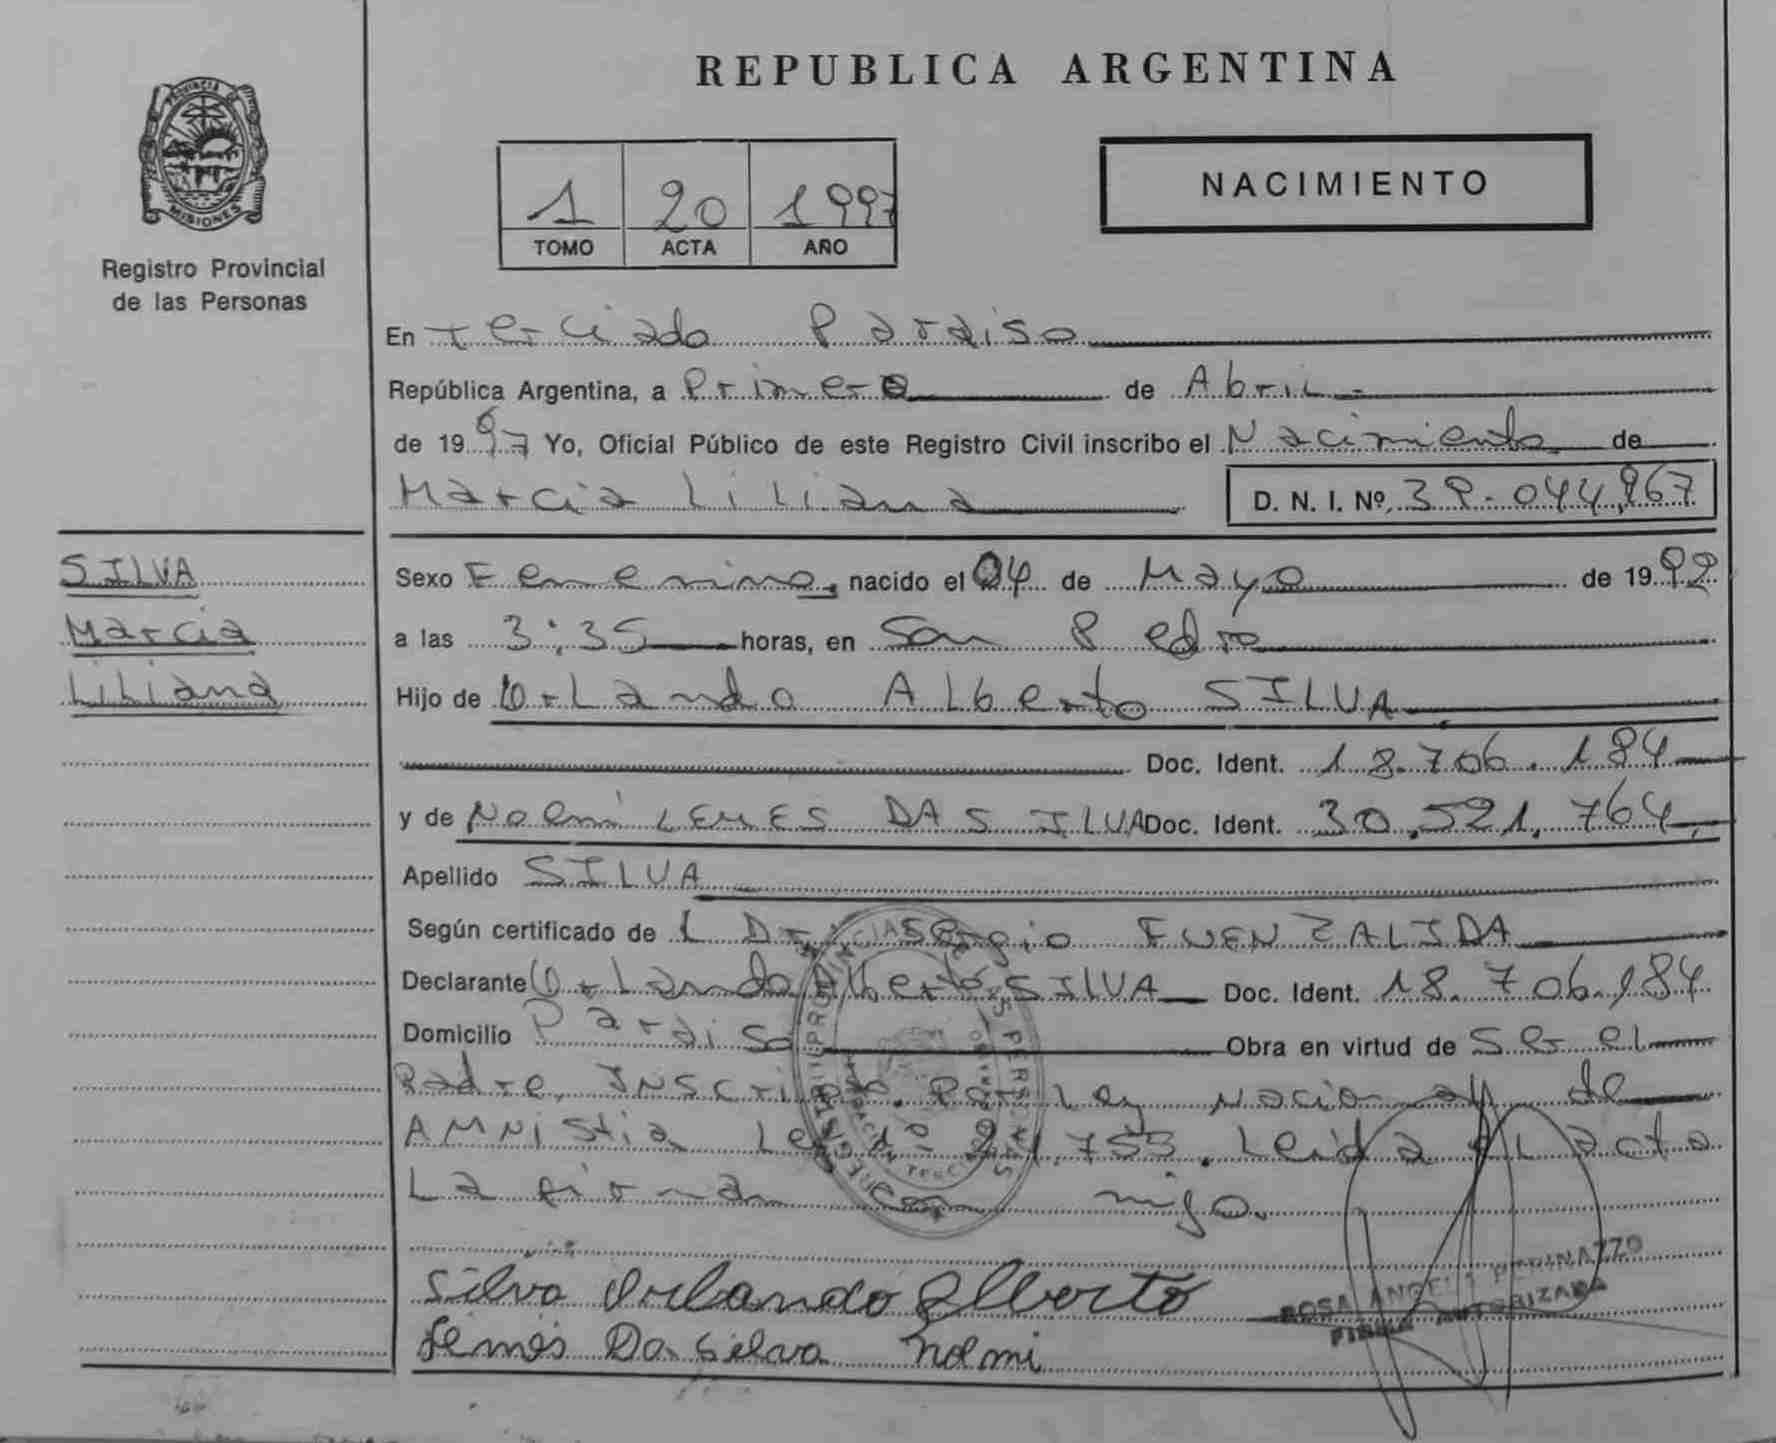 REPUBLICA ARGENTINA
PROVINCIA DE
MISIONES
Registro Provincial
de las Personas
1 20 1997
TOMO ACTA AÑO
NACIMIENTO
En Terciado Paraiso
República Argentina, a Primero de Abril
de 1997 Yo, Oficial Público de este Registro Civil inscribo el Nacimiento de
Marcia Liliana D. N. I. Nº 39.044.867
SILVA
Marcia
Liliana
Sexo Femenino, nacido el 04 de Mayo de 1992
a las 3:35 horas, en San Pedro
Hijo de Orlando Alberto SILVA
Doc. Ident. 18.706.184
y de Noemi LEMES DA SILVA Doc. Ident. 30.521.764
Apellido SILVA
Según certificado de L Dr. Sergio FUENZALIDA
Declarante Orlando Alberto SILVA Doc. Ident. 18.706.184
Domicilio Paraiso Obra en virtud de Ser el
Padre, Inscripto Por Ley Nacional de
AMNistia Ley 21.755. Leida el Acta
La firman con migo.
Silva Orlando Alberto
Lemes Da Silva Noemi
ROSA ANGELA
FIRMA AUTORIZADA